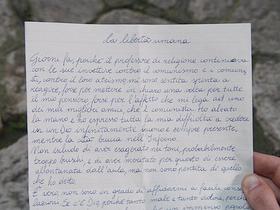 la libertà umana
Giorni fa, poiché il professore di religione continuava
con le sue invettive contro il comunismo e i comuni
sti, contro il loro ateismo mi sono sentita spinta a
reagire, forse per mettere in chiaro una volta per tutte
il mio pensiero forse per l'affetto che mi lega ad uno
dei miei migliori amici, che è comunista. Ho alzato
la mano e ho espresso tutta la mia difficoltà a credere
in un Dio infinitamente buono e sempre presente,
mentre la
Non escludo di aver esagerato nei toni, probabilmente
troppo bruschi, e di aver meritato per questo di essere
allontanata dall'aula, ma non sono pentita di quello
che ho detto.
E vero non sono in grado di affidarmi a facili conso
lazioni. Se c'è Dio poiché tanto male, tanto dolore, perché